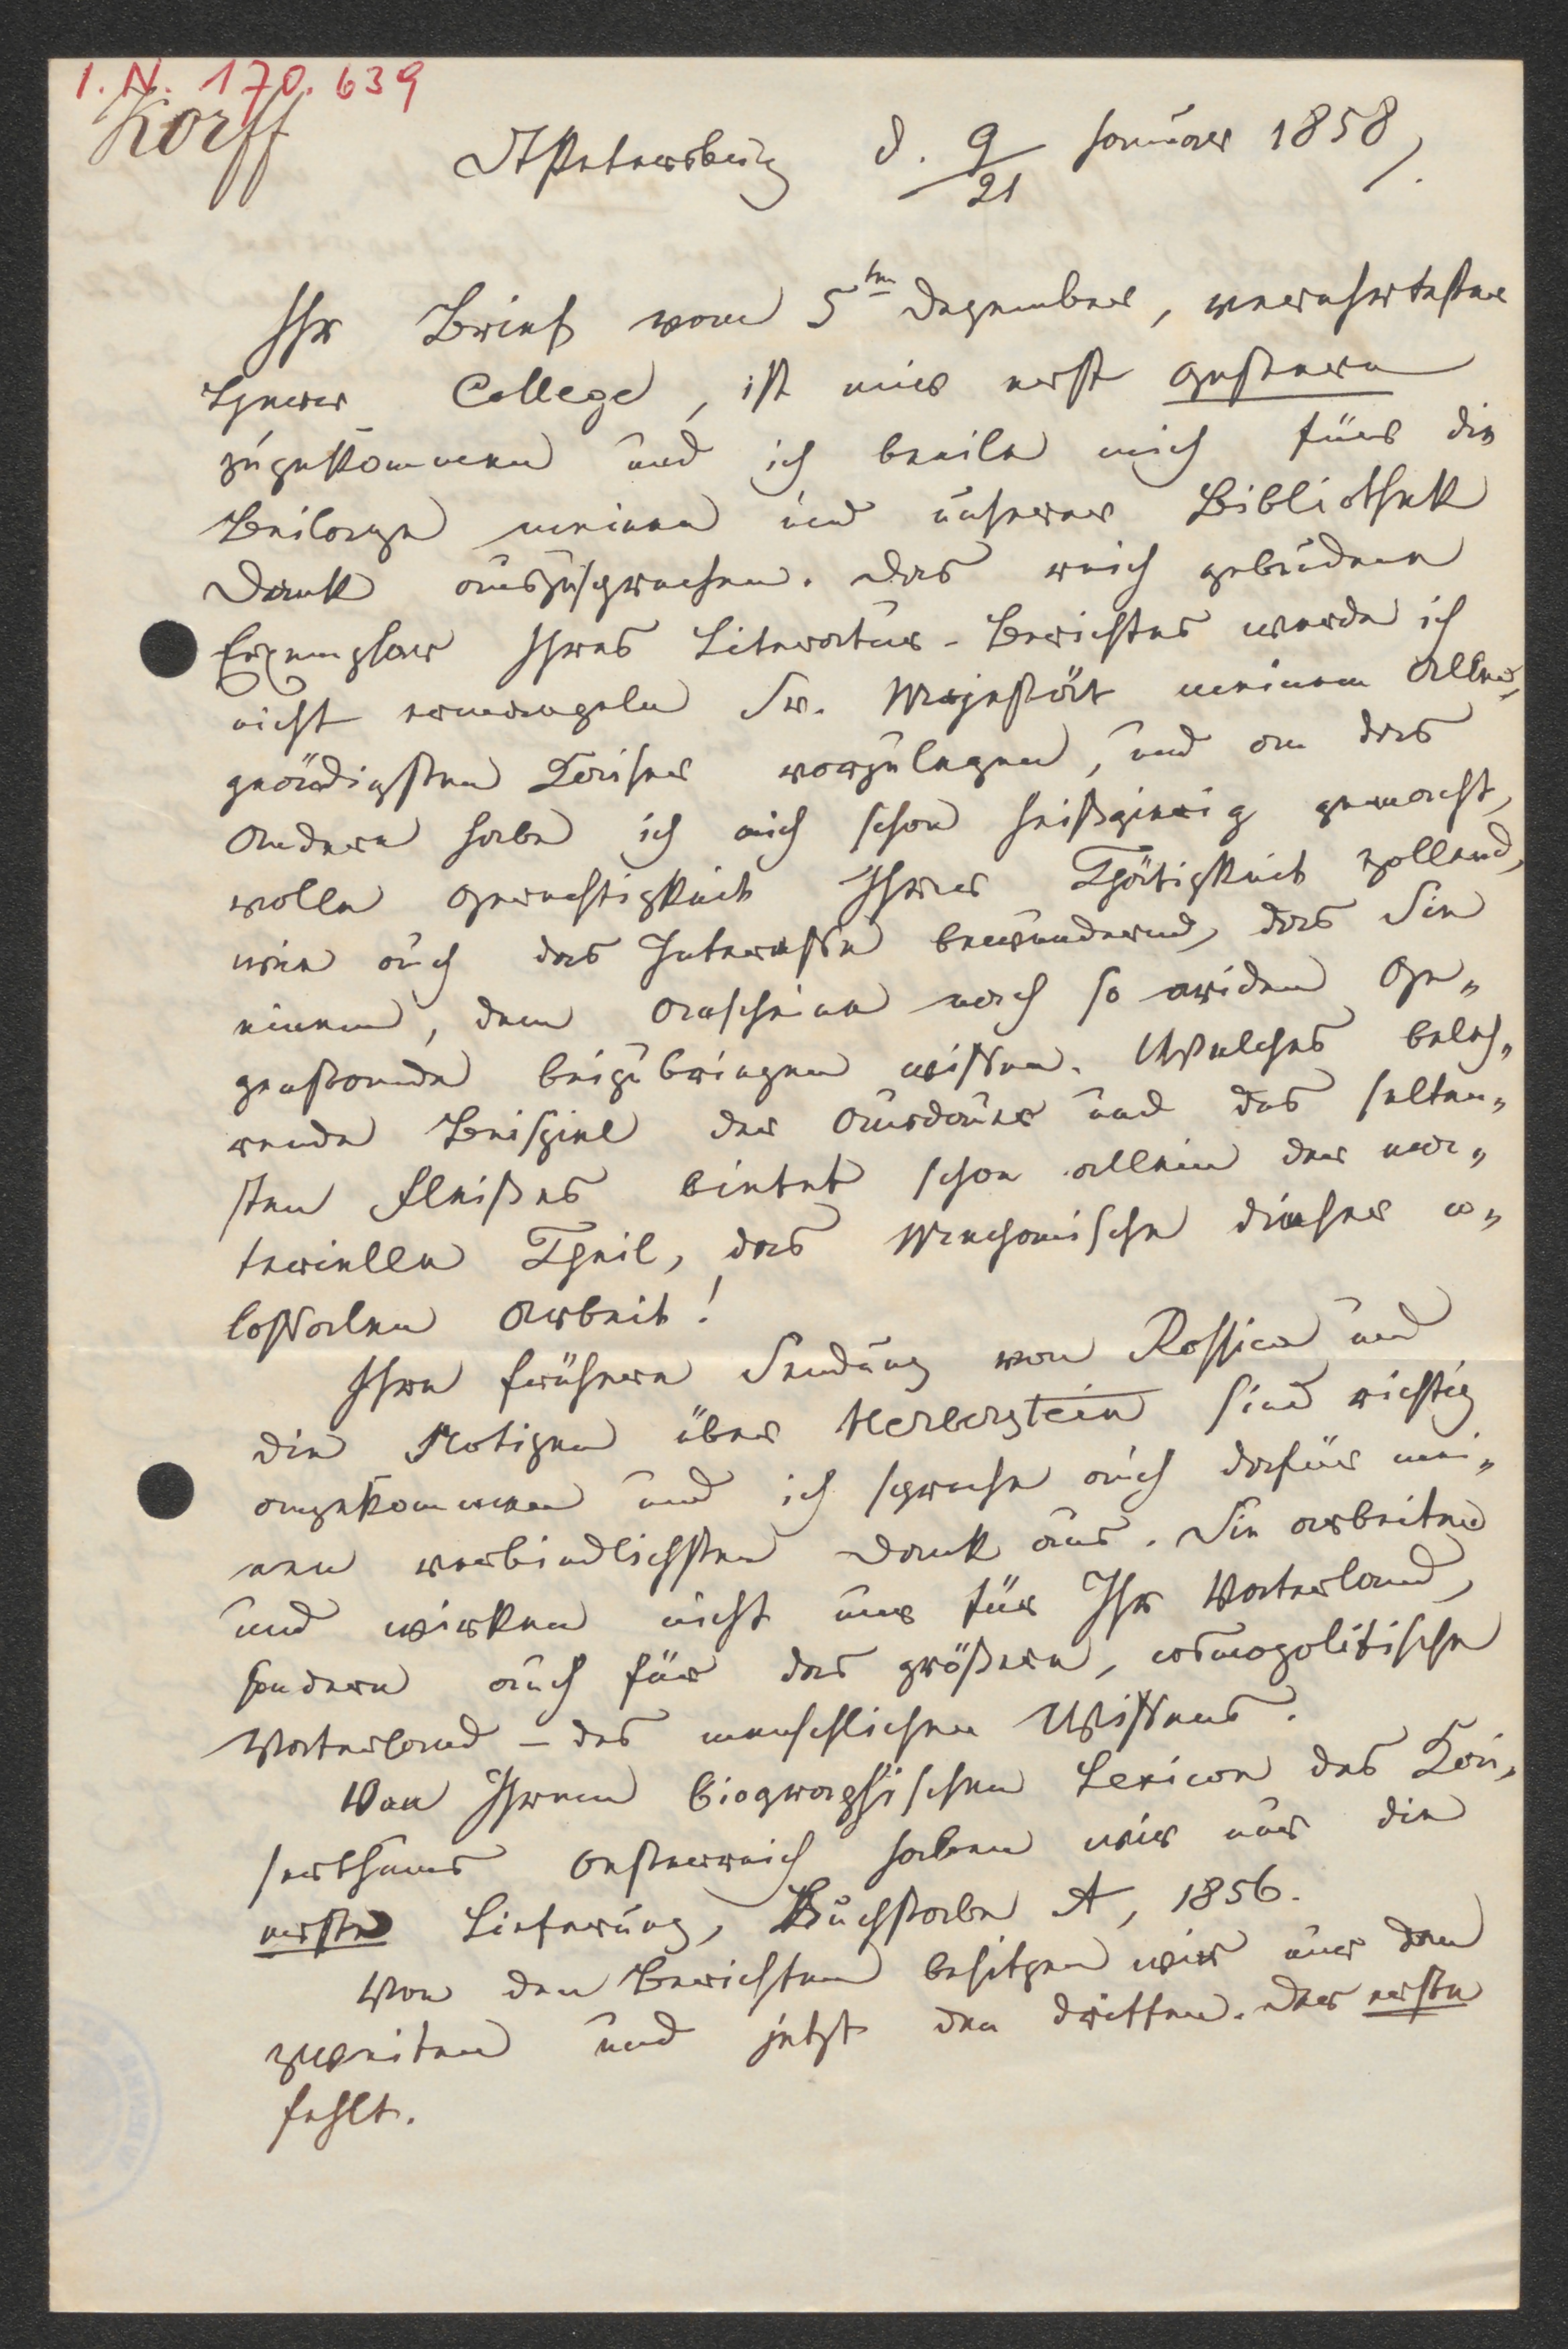 I.N. 170.639
Korff
St Petersburg d. 9/21 Januar 1858.
Ihr Brief vom 5ten Dezember, verehrtester
Herr College, ist mir erst gestern
zugekommen und ich beeile mich für die
Beilage meinen und unserer Bibliothek
Dank auszusprechen. Das reich gebundene
Exemplar Ihres Literatur-Berichtes werde ich
nicht ermangeln Sr. Majestät meinem Aller„
gnädigsten Kaiser vorzulegen, und an das
Andere habe ich mich schon heißgierig gemacht,
volle Gerechtigkeit Ihrer Thätigkeit zollend,
wie auch das Interesse bewundernd, das Sie
einem, dem Anscheine nach so ariden Ge„
genstande beizubringen wissen. Welches beleh„
rende Beispiel der Ausdauer und des selten„
sten Fleißes bietet schon allein der ma„
terielle Theil, das Mechanische dieser co„
lossalen Arbeit!
Ihre frühere Sendung von Rossica und
die Notizen über Herberstein sind richtig
angekommen und ich spreche auch dafür mei„
nen verbindlichsten Dank aus. Sie arbeiten
und wirken nicht nur für Ihr Vaterland,
sondern auch für das größere, cosmopolitische
Vaterland – des menschlichen Wissens.
Von Ihrem biographischen Lexicon des Kai„
serthums Oesterreich haben wir nur die
erste Lieferung, Buchstabe A, 1856.
Von den Berichten besitzen wir nur den
zweiten und jetzt den dritten. Der erste
fehlt.